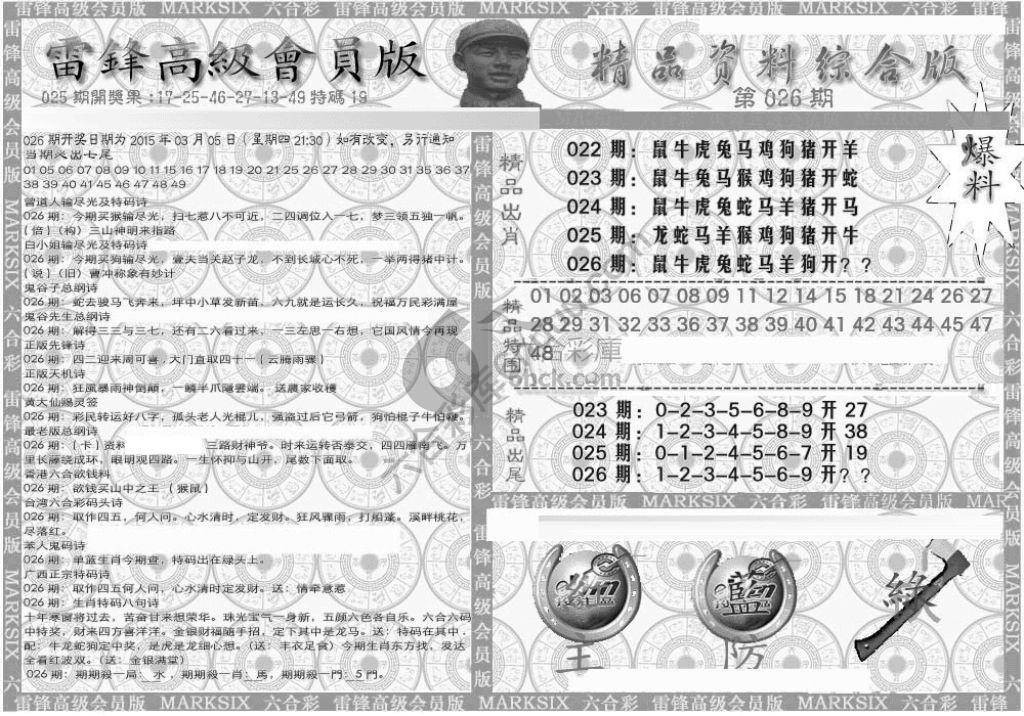 雷锋高级会员版 MARKSIX 六合彩 雷锋高级会员版 MARKSIX 六合彩 雷锋高级会员版 MARKSIX 六合彩 雷锋
雷鋒高級會員版
025 期開獎果:17-25-46-27-13-49 特碼 19
精品资料综合版
第 026 期
爆料
026 期开奖日期为 2015 年 03 月 05 日（星期四 21:30）如有改变，另行通知
当期必出七尾
01 05 06 07 08 09 10 11 15 16 17 18 19 20 21 25 26 27 28 29 30 31 35 36 37
38 39 40 41 45 46 47 48 49
曾道人输尽光及特码诗
026 期：今期买猴输尽光，扫七惹八不可近，二四调位入一七，梦三领五独一帆。
{倍}（构）三山神明来指路
白小姐输尽光及特码诗
026 期：今期买狗输尽光，壹夫当关赵子龙，不到长城心不死，一举两得猪中计。
{说}（旧）曹冲称象有妙计
鬼谷子总纲诗
026 期：蛇去骏马飞奔来，坪中小草发新苗，六九就是运长久，祝福万民彩满屋
鬼谷先生总纲诗
026 期：解得三三与三七，还有二六看过来，一三左思一右想，它国风情今再现
正版先锋诗
026 期：四二迎来周可喜，大门直取四十一{云腾雨骤}
正版天机诗
026 期：狂風暴雨神倒顛，一鱗半爪隱雲端。送農家收穫
黄大仙赐灵签
026 期：彩民转运好八字，孤头老人光棍儿，强盗过后它弓箭，狗怕棍子牛怕鞭。
最老版总纲诗
026 期：{卡}资料 三路财神爷。时来运转否泰交，四四雁南飞。万
里长藤绕成环，眼明观四路。一生怀抑与山开，尾数下面取。
香港六合欲钱料
026 期：欲钱买山中之王 {猴鼠}
台湾六合彩码头诗
026 期：取作四五，何人问。心水清时，定发财。狂风骤雨，打船蓬。溪畔桃花，
尽落红。
本人鬼码诗
026 期：单蓝生肖今期查，特码出在绿头上。
广西正宗特码诗
026 期：取作四五何人问，心水清时定发财。送：情牵意惹
026 期：生肖特码八句诗
十年寒窗将过去，苦奋甘来想荣华。珠光宝气一身新，五颜六色各自乐。六合六码
中特奖，财来四方喜洋洋。金银财福随手招，定下其中是龙马。送：特码在其中.
配：牛龙蛇狗定中奖，是虎是龙细心想。（送：丰衣足食）今期生肖东方找，发达
全看红波双。（送：金银满堂）
026 期：期期殺一局：水，期期殺一肖：馬，期期殺一門：5 門。
雷锋高级会员版
六合彩
精品出肖
022 期：鼠牛虎兔马鸡狗猪开羊
023 期：鼠牛兔马猴鸡狗猪开蛇
024 期：鼠牛虎兔蛇马羊猪开马
025 期：龙蛇马羊猴鸡狗猪开牛
026 期：鼠牛虎兔蛇马羊狗开？？
精品特围
01 02 03 06 07 08 09 11 12 14 15 18 21 24 26 27
28 29 31 32 33 36 37 38 39 40 41 42 43 44 45 47
48
彩庫
6hck.com
精品出尾
023 期：0-2-3-5-6-8-9 开 27
024 期：1-2-3-4-5-8-9 开 38
025 期：0-1-2-4-5-6-7 开 19
026 期：1-2-3-4-5-6-9 开？？
雷锋高级会员版 MARKSIX 六合彩 雷锋高级会员版 MARKSIX
藍
綠
主
防
雷锋高级会员版 MARKSIX 六合彩 雷锋高级会员版 MARKSIX 六合彩 雷锋高级会员版 MARKSIX 六合彩 雷锋